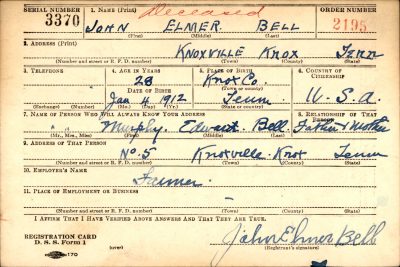 SERIAL NUMBER 1. NAME (Print) Deceased ORDER NUMBER
3370 JOHN ELMER BELL 2195
(First) (Middle) (Last)
2. ADDRESS (Print)
KNOXVILLE KNOX TENN
(Number and street or R. F. D. number) (Town) (County) (State)
3. TELEPHONE 4. AGE IN YEARS 5. PLACE OF BIRTH 6. COUNTRY OF CITIZENSHIP
28 Knox Co.
DATE OF BIRTH (Town or county)
Jan 4 1912 Tenn. U. S. A.
(Exchange) (Number) (Mo.) (Day) (Yr.) (State or country)
7. NAME OF PERSON WHO WILL ALWAYS KNOW YOUR ADDRESS 8. RELATIONSHIP OF THAT PERSON
Murphy Edward Bell Father & Mother
(Mr., Mrs., Miss) (First) (Middle) (Last)
9. ADDRESS OF THAT PERSON
No. 5 Knoxville Knox Tenn
(Number and street or R. F. D. number) (Town) (County) (State)
10. EMPLOYER'S NAME
Farmer
11. PLACE OF EMPLOYMENT OR BUSINESS
(Number and street or R. F. D. number) (Town) (County) (State)
I AFFIRM THAT I HAVE VERIFIED ABOVE ANSWERS AND THAT THEY ARE TRUE.
REGISTRATION CARD
D. S. S. Form 1 (over) John Elmer Bell
(Registrant's signature)